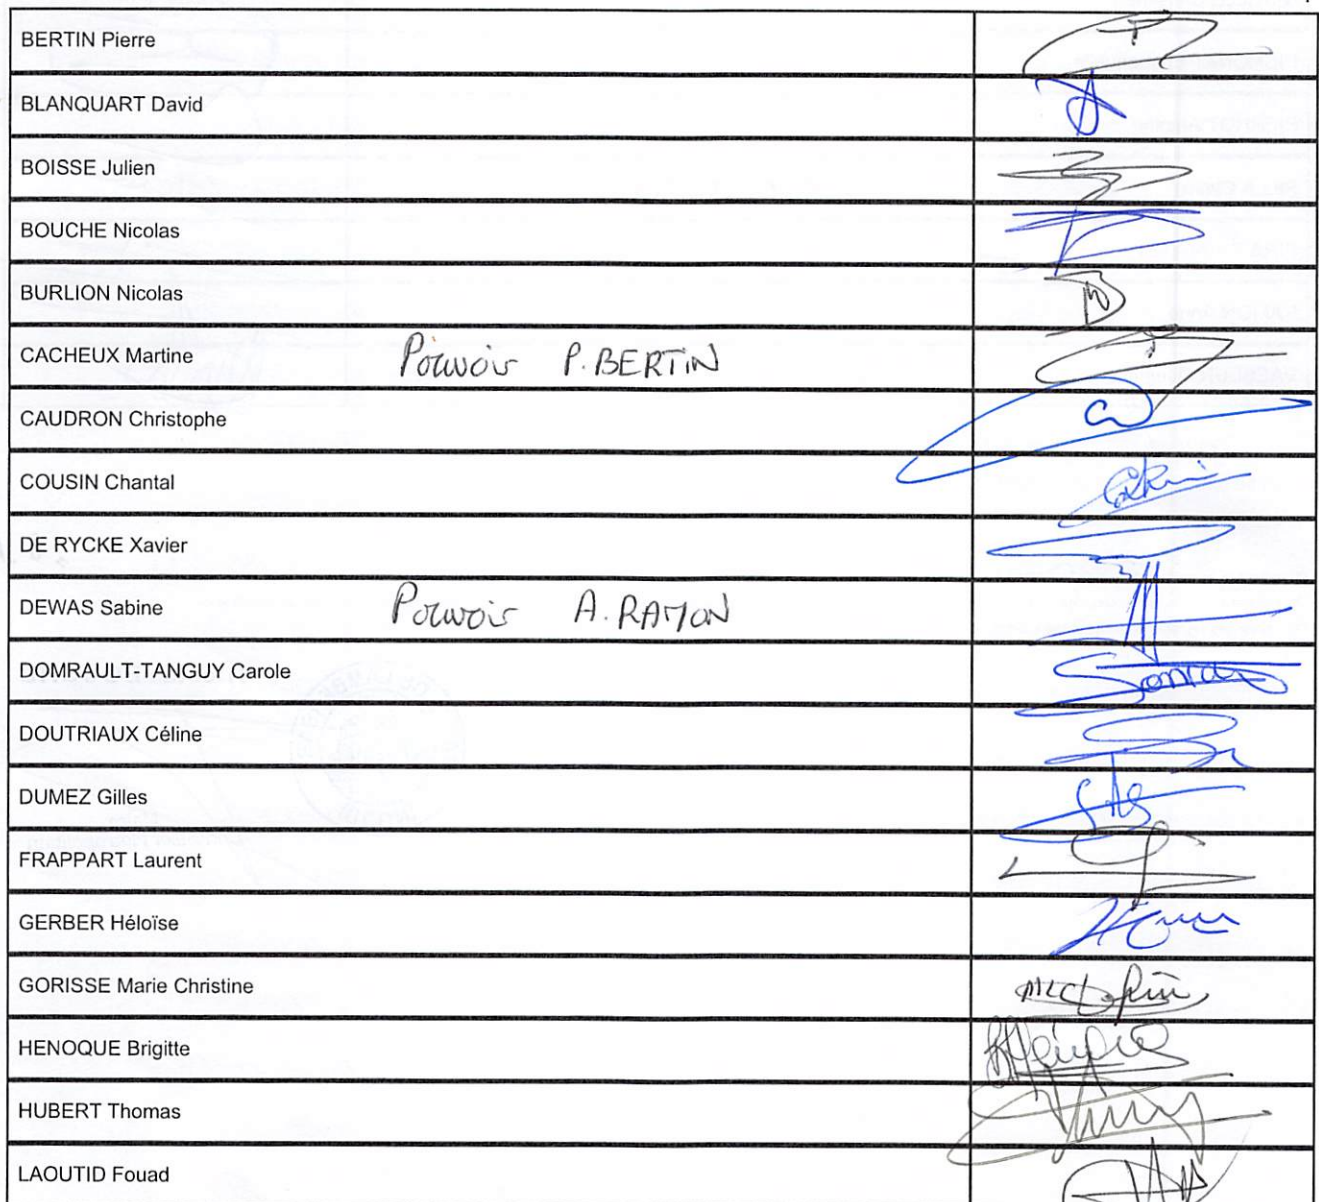 BERTIN Pierre
BLANQUART David
BOISSE Julien
BOUCHE Nicolas
BURLION Nicolas
CACHEUX Martine Pouvoir P. BERTIN
CAUDRON Christophe
COUSIN Chantal
DE RYCKE Xavier
DEWAS Sabine Pouvoir A. RAMON
DOMRAULT-TANGUY Carole
DOUTRIAUX Céline
DUMEZ Gilles
FRAPPART Laurent
GERBER Héloïse
GORISSE Marie Christine
HENOQUE Brigitte
HUBERT Thomas
LAOUTID Fouad